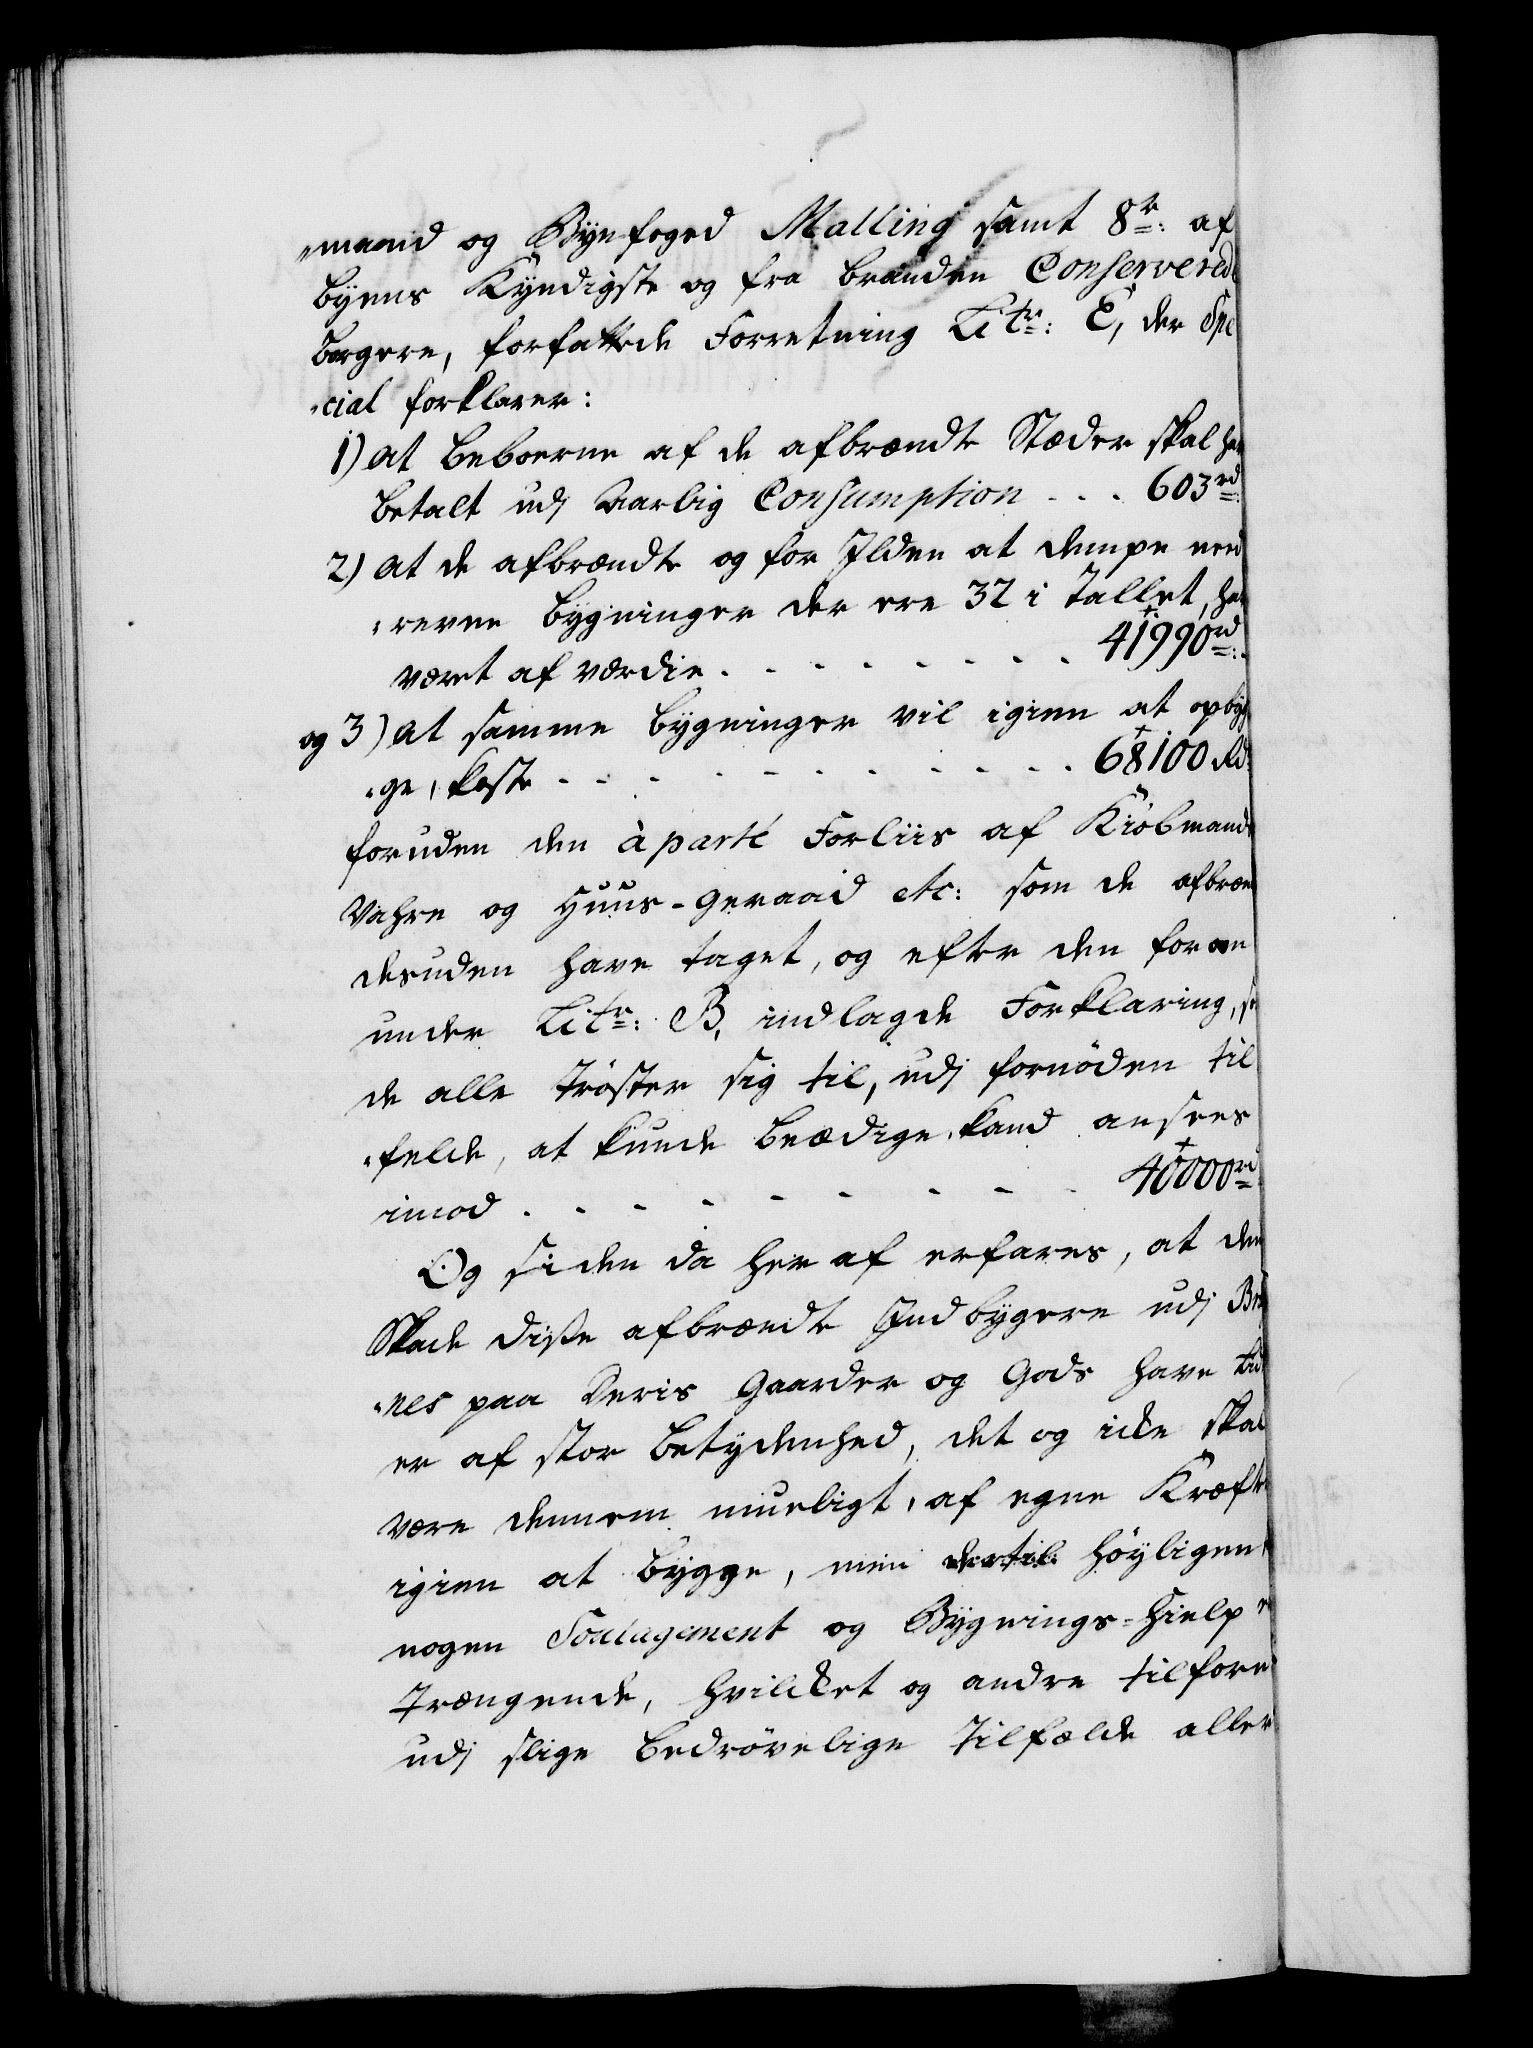 "mand og Byefoged Malling samt 8te: af
byens Kyndigste og fra branden Conserverede
borgere, forfattede Forretning Litr: E, der Spe
"cial forklarer:
1) at beboerne af de afbrændte Stæder skal have
betalt udj Aarlig Consumption - - - 603rd:
2) at de afbrændte og for Ilden at dempe need
"revne bygninger der ere 32 i Tallet, har
været af værdie - - - - - - - - 41990rd:
og 3) at samme bygninger vil igien at opbyg
"ge, koste - - - - - - - - - - 68100 Rd:
foruden den à parté Forliis af Kiöbmands
Vahre og Huus-geraad etc: som de afbræn
desuden have taget, og efter den foran
under Litr: B, indlagde Forklaring, so
de alle tröster sig til, udj fornöden til
"felde, at kunde beædige, kand ansees
imod - - - - - - - - - 40000rd
Og siden da her af erfares, at den
Skade disse afbrændte Indbygere udj Br
"nes paa Deris Gaarder og Gods have lid
er af stor betydenhed, det og icke skal
være dennem mueligt, af egne Kræfte
igien at bygge, men dertil höyligen
nogen Soulagement og Bygnings-Hielp
trængende, hvilcket og andre tilforn
udj slige bedrövelige Tilfælde aller